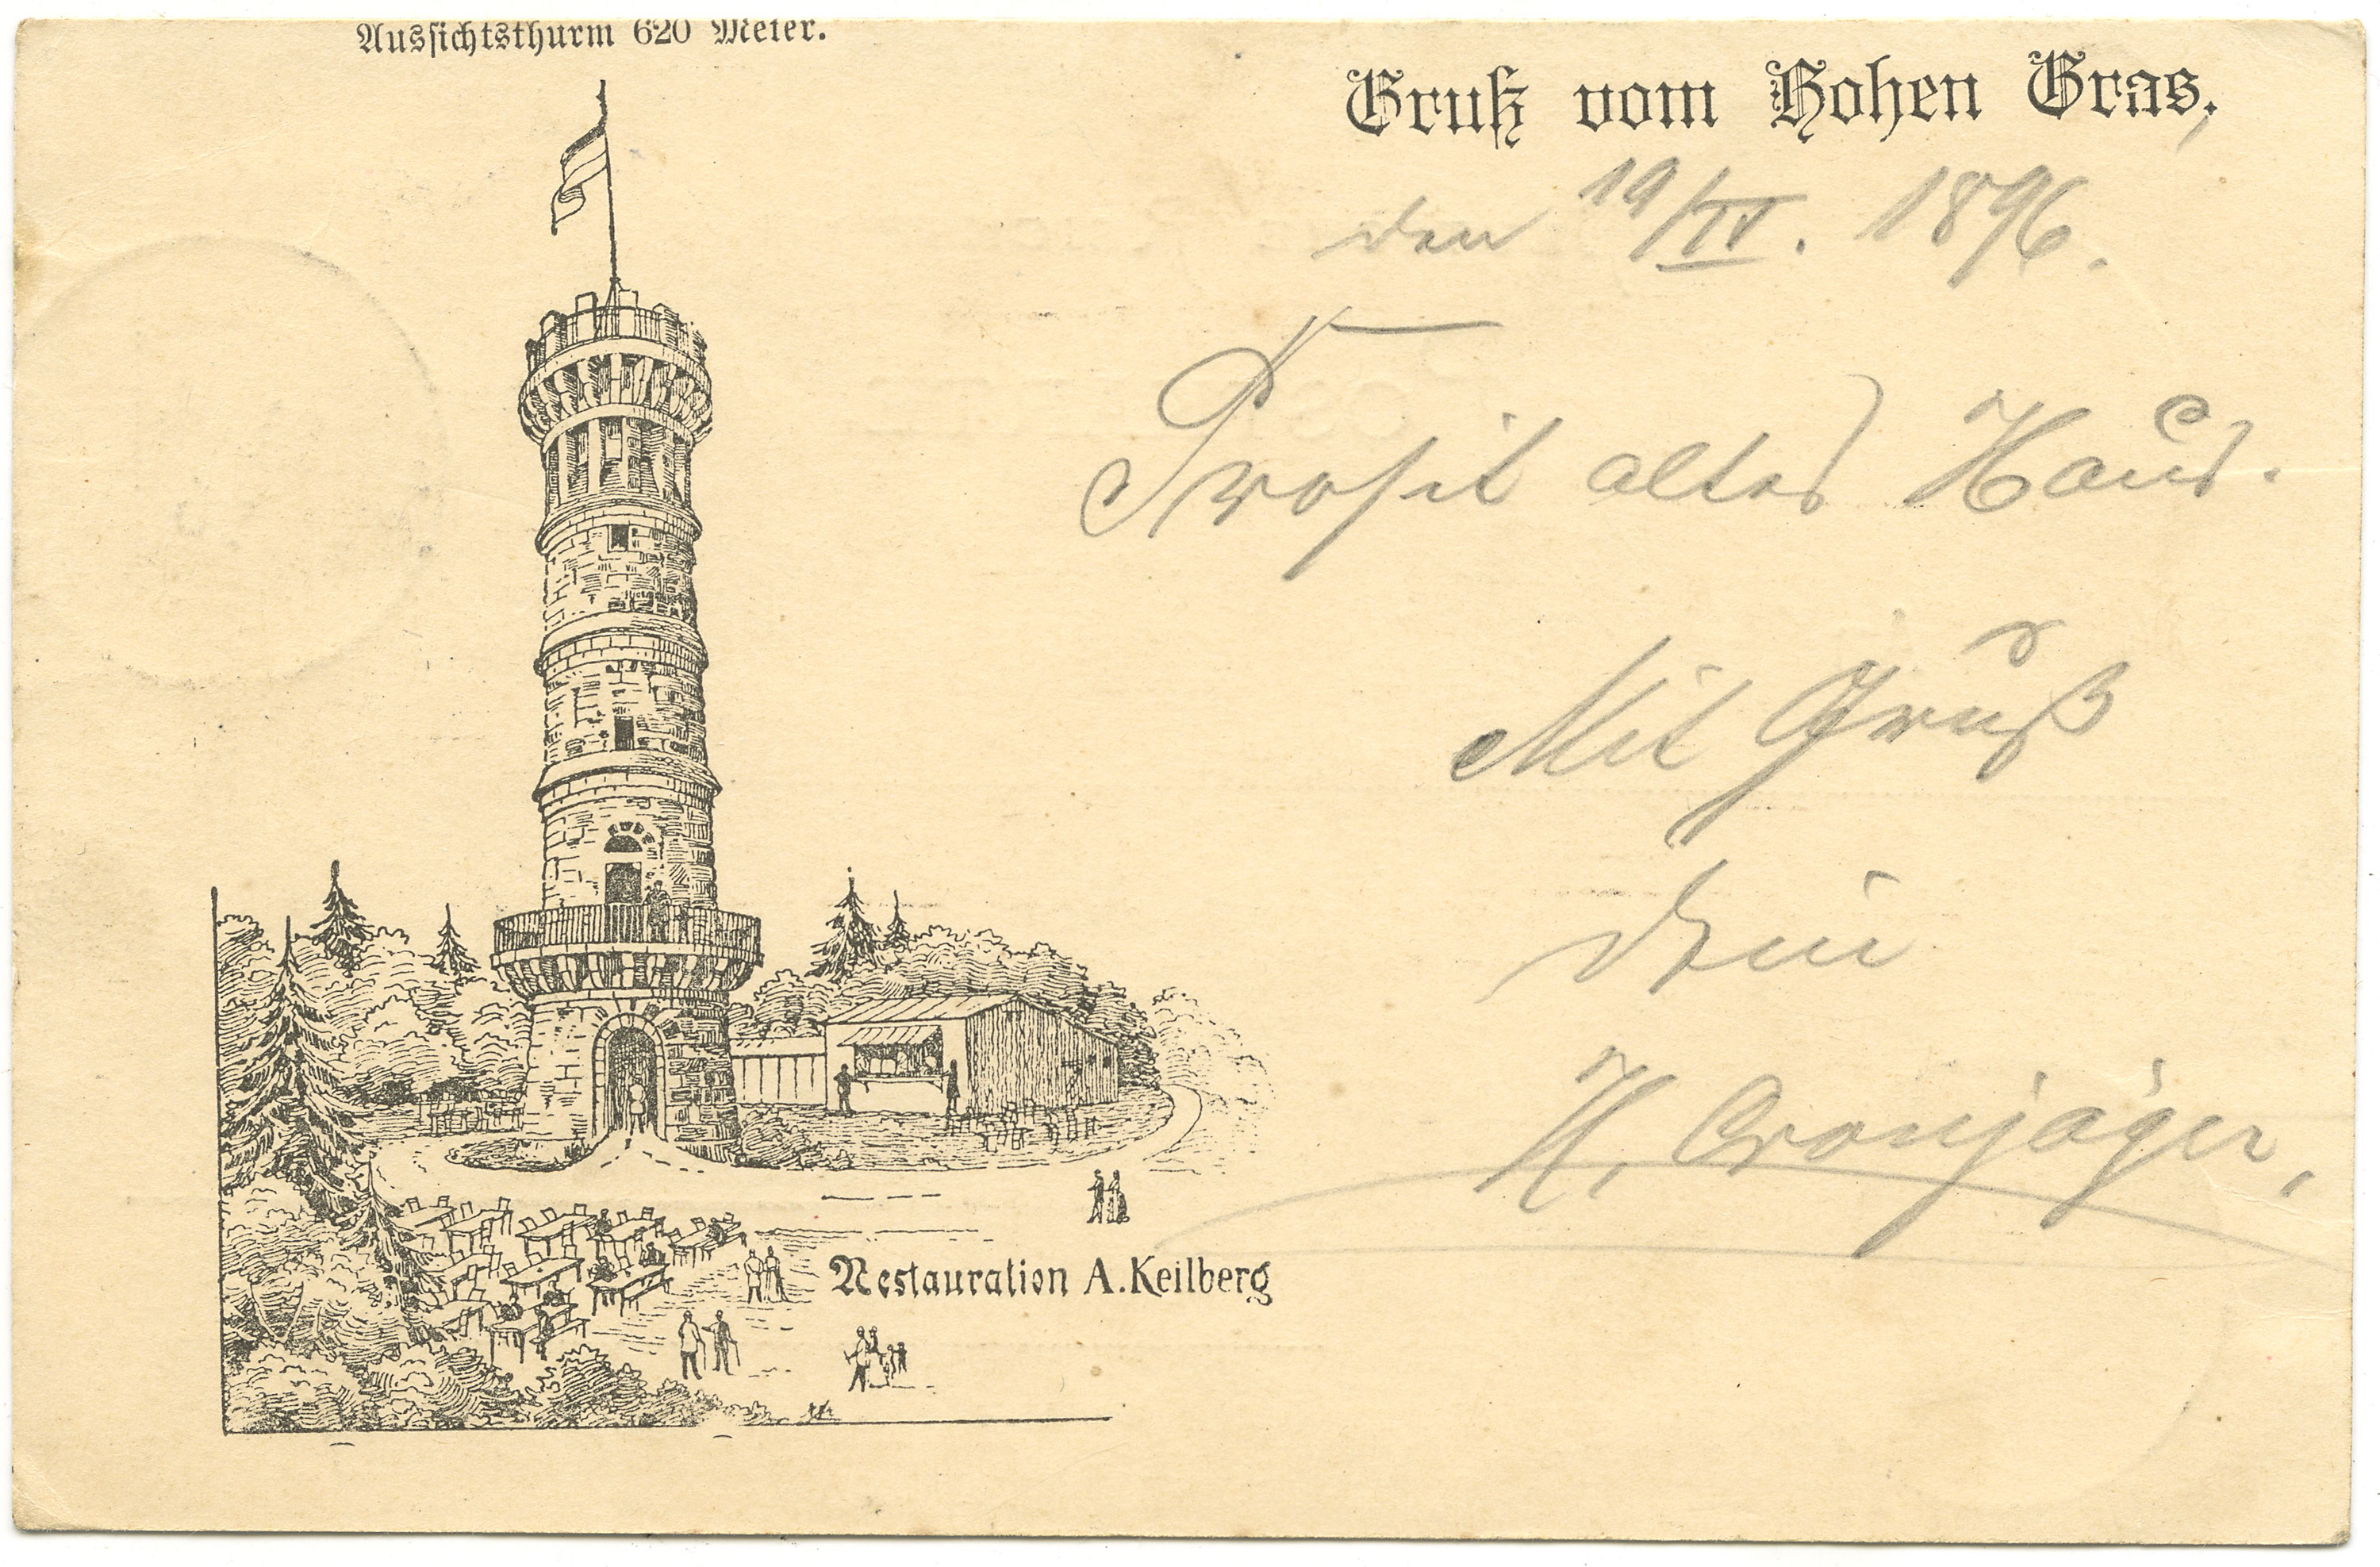 Aussichtsthurm 620 Meter.
Gruß vom Hohen Gras.
den 19/IV. 1896.
Prosit altes Haus.
Mit Gruß
dein
H. Cronjäger,
Restauration A. Keilberg